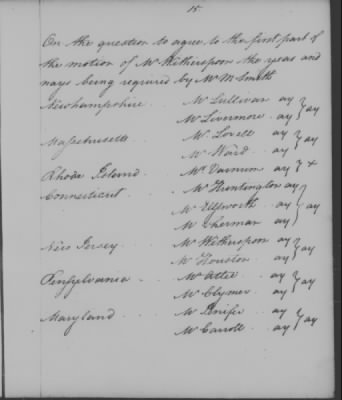 15
On the question to agree to the first part of
the motion of Mr Witherspoon the yeas and
nays being required by Mr M. Smith
Newhampshire Mr Sullivan ay } ay
Mr Livermore ay
Massachusetts Mr Lovell ay } ay
Mr Ward ay
Rhode Island Mr Varnum ay } +
Connecticut Mr Huntington ay } ay
Mr Ellsworth ay
Mr Sherman ay
New Jersey Mr Witherspoon ay } ay
Mr Houston ay
Pensylvania Mr Atlee ay } ay
Mr Clymer ay
Maryland Mr Jenifer ay } ay
Mr Carroll ay